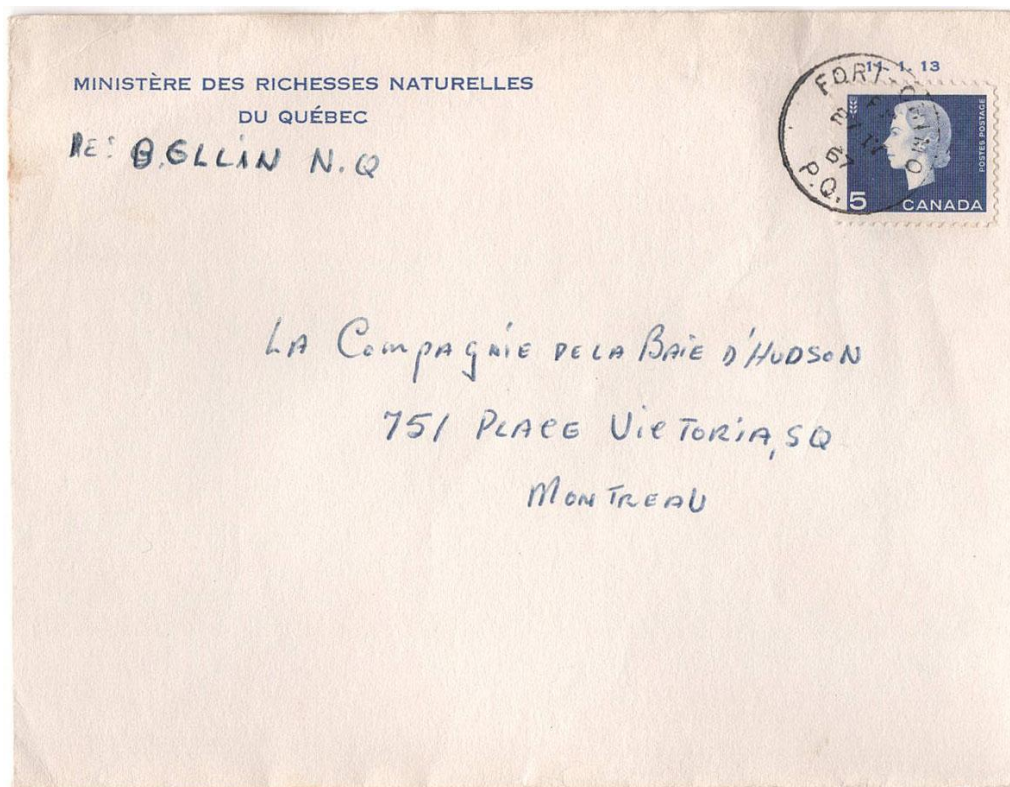 MINISTÈRE DES RICHESSES NATURELLES
DU QUÉBEC
DE: BELLIN N.Q
11- 1. 13
FORT-CHIMO
67
P.Q.
POSTES POSTAGE
5 CANADA
LA Compagnie DE LA BAIE D'HUDSON
751 PLACE VICTORIA, SQ
MONTREAU